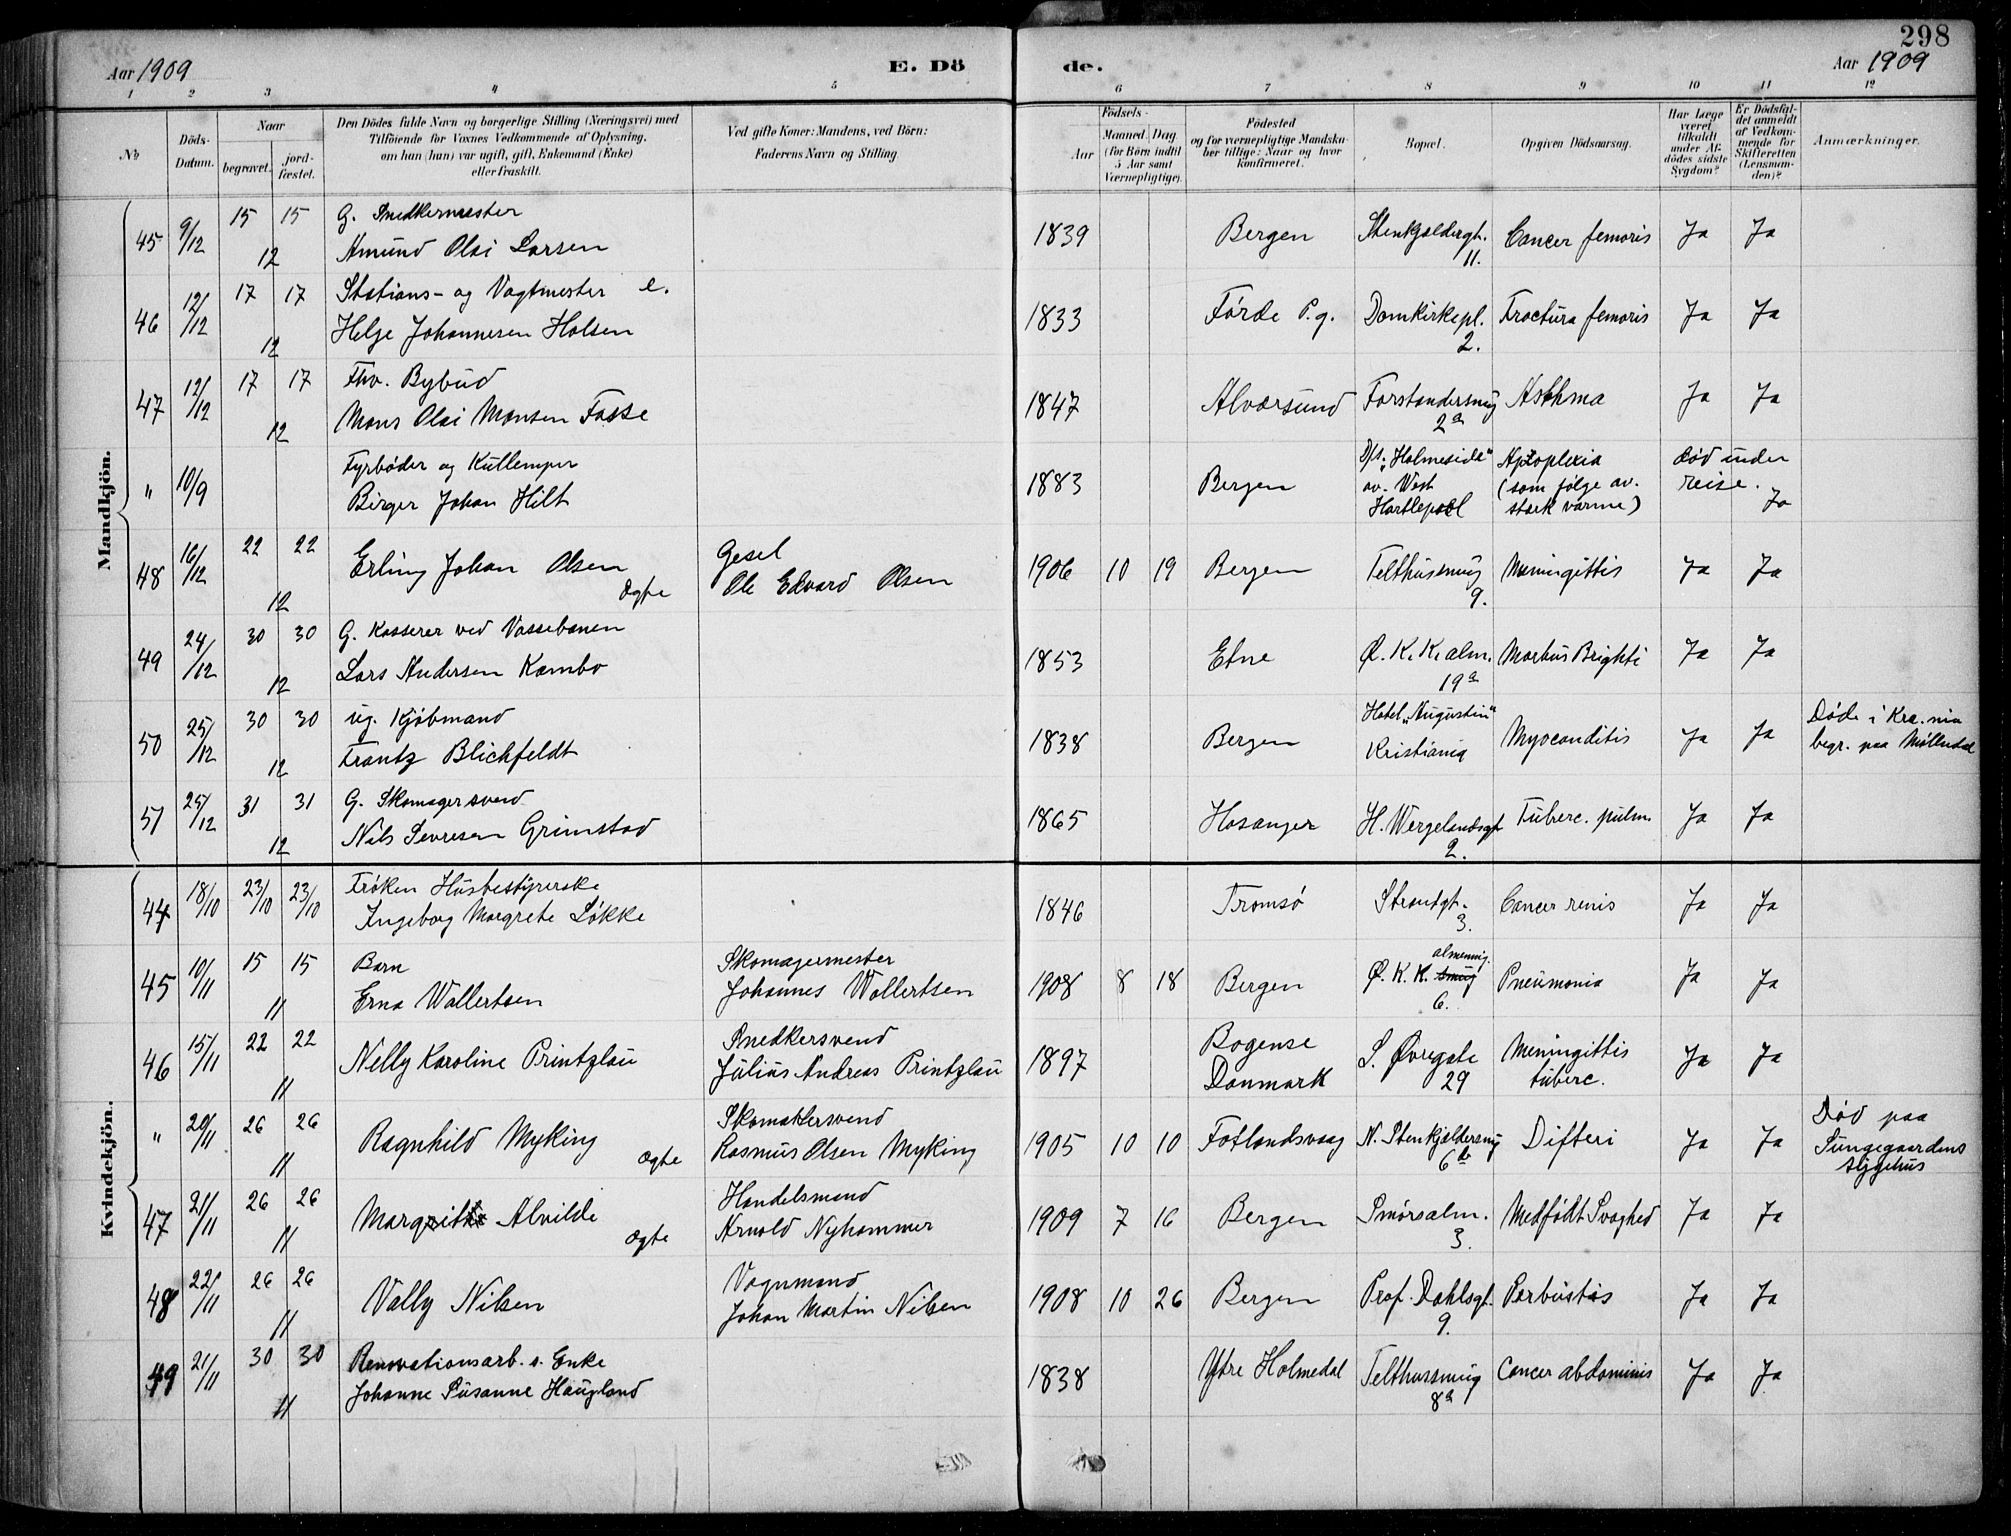 298
Aar 1909
E. Dö
de.
Aar 1909
1 2 3 4 5 6 7 8 9 10 11 12
No
Döds-Datum.
Naar
begravet.
jord-fæstet.
Den Dödes fulde Navn og borgerlige Stilling (Næringsvei) med
Tilföiende for Voxnes Vedkommende af Oplysning,
om han (hun) var ugift, gift, Enkemand (Enke)
eller fraskilt.
Ved gifte Koner: Mandens, ved Börn:
Faderens Navn og Stilling.
Födsels-
Aar
Maaned. Dag.
(for Börn indtil
5 Aar samt
Værnepligtige).
Födested
og for værnepligtige Mandska-
ber tillige: Naar og hvor
konfirmeret.
Bopæl.
Opgiven Dödsaarsag.
Har Læge
været
tilkaldt
under Af-
dödes sidste
Sygdom?
Er Dödsfal-
det anmeldt
af Vedkom-
mende for
Skifteretten
(Lensman-
den)?
Anmærkninger.
Mandkjön.
45 9/12 15 15 12 G. Snedkermester
Amund Olai Larsen
1839 Bergen Stenkjældergt. 11. Cancer femoris Ja Ja
46 12/12 17 17 12 Stations- og Vagtmester e.
Helge Johannesen Holsen
1833 Førde P.g. Domkirkepl. 2. Fractura femoris Ja Ja
47 12/12 17 17 12 Fhv. Bybud
Mons Olai Monsen Fosse
1847 Alversund Forstandersmug 2a Asthma Ja Ja
" 10/9 Fyrbøder og Kullemper
Birger Johan Hilt
1883 Bergen D/s. "Holmeside"
av West
Hartlepool
Apoplexia
(som følge av.
stærk varme)
død under
reise. Ja
48 16/12 22 22 12 Erling Johan Olsen
ægte
Gesel
Ole Edvard Olsen
1906 10 19 Bergen Telthussmug 9. Meningittis Ja Ja
49 24/12 30 30 12 G. Kasserer ved Vossebanen
Lars Andersen Kambo
1853 Etne Ø. K. K. alm. 19a Morbus Brighti Ja Ja
50 25/12 30 30 12 ug. Kjøbmand
Frantz Blichfeldt
1838 Bergen Hotel "Augustin"
Kristiania
Myocarditis Ja Ja Døde i Kra.nia
begr. paa Møllendal
51 25/12 31 31 12 G. Skomagersvend
Nils Severesen Grimstad
1865 Hosanger H. Wergelandsgt 2. Tuberc. pulm. Ja Ja
Kvindekjön.
44 18/10 23/10 23/10 Frøken Husbestyrerske
Ingeborg Margrete Løkke
1846 Tromsø Strandgt. 3. Cancer renis Ja Ja
45 10/11 15 15 11 Barn
Erna Wallertsen
Skomagermester
Johannes Wallertsen
1908 8 18 Bergen Ø. K. K. smug almenning. 6. Pneumonia Ja Ja
46 15/11 22 22 11 Nelly Karoline Printzlau
Snedkersvend
Julius Andreas Printzlau
1897 Bogense
Danmark
L. Øvregate 29 Meningittis
tuberc. Ja Ja
" 20/11 26 26 11 Ragnhild Myking
ægte
Skomakersvend
Rasmus Olsen Myking
1905 10 10 Fotlandsvaag N. Stenkjældersmug 6 Difteri Ja Ja Død paa
Pungegaardens
sygehus
47 21/11 26 26 11 Alvilde
ægte
Handelsmand
Arnold Nyhammer
1909 7 16 Bergen Smørsalm. 3. Medfødt Svaghed Ja Ja
48 22/11 26 26 11 Vally Nilsen
Vognmand
Johan Martin Nilsen
1908 10 26 Bergen Prof. Dahlsgt. 9. Ja Ja
49 21/11 30 30 11 Renovationsarb. s. Enke
Johanne Susanne Haugland
1838 Ytre Holmedal Telthussmug 8a Cancer abdominis Ja Ja